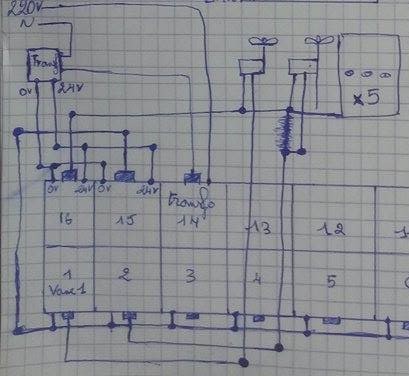 220V
N
Transfo
0V 24V
x5
0V 24V 0V 24V
Transfo
16 15 14 13 12
1 2 3 4 5
Vane 1